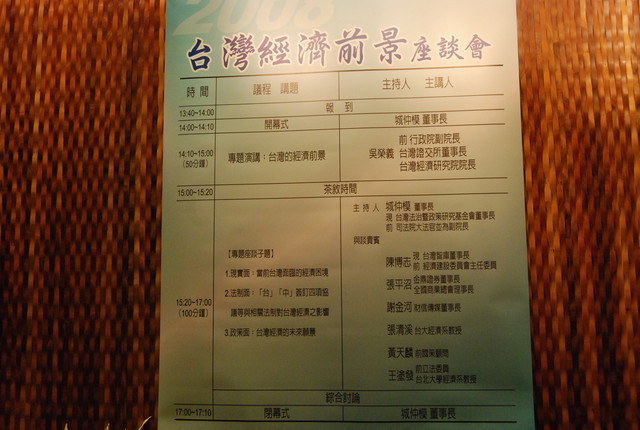 2008
台灣經濟前景座談會
時間 議程 講題 主持人 主講人
13:40~14:00 報到
14:00~14:10 開幕式 城仲模 董事長
14:10~15:00
(50分鐘)
專題演講：台灣的經濟前景
吳榮義
前 行政院副院長
台灣證交所董事長
台灣經濟研究院院長
15:00~15:20 茶敘時間
15:20~17:00
(100分鐘)
【專題座談子題】
1.現實面：當前台灣面臨的經濟困境
2.法制面：「台」「中」簽訂四項協
議等與相關法制對台灣經濟之影響
3.政策面：台灣經濟的未來願景
主持人 城仲模 董事長
現 台灣法治暨政策研究基金會董事長
前 司法院大法官並為副院長
與談貴賓
陳博志 現 台灣智庫董事長
前 經濟建設委員會主任委員
張平沼 金鼎證券董事長
全國商業總會理事長
謝金河 財信傳媒董事長
張清溪 台大經濟系教授
黃天麟 前國策顧問
王塗發 前立法委員
台北大學經濟系教授
綜合討論
17:00~17:10 閉幕式 城仲模 董事長